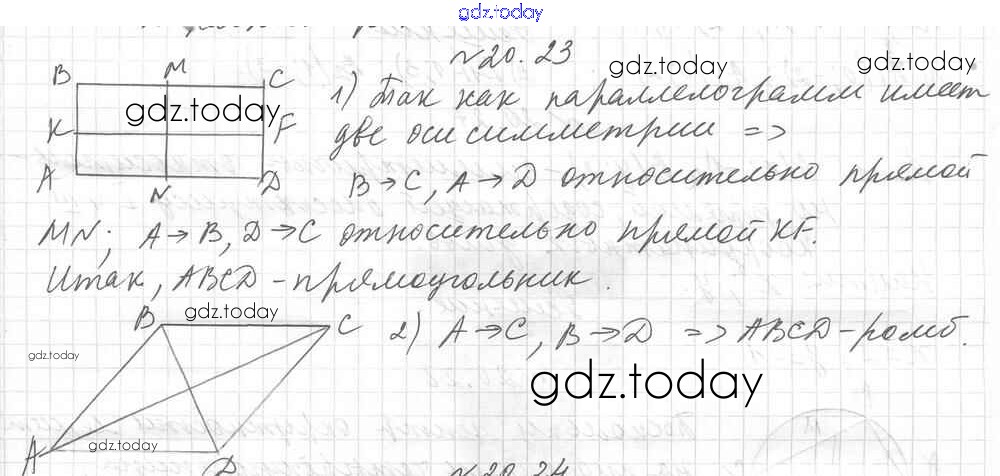 gdz.today
№20.23
gdz.today
gdz.today
B M C
1) Так как параллелограмм имеет
gdz.today
K F
две оси симметрии =>
A N D
B→C, A→D относительно прямой
MN; A→B, D→C относительно прямой KF.
Итак, ABCD - прямоугольник.
gdz.today
B C
2) A→C, B→D => ABCD - ромб.
gdz.today
gdz.today
gdz.today
A D
№20.24